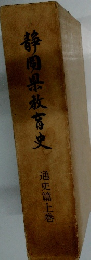 静岡県教育史
通史篇上巻